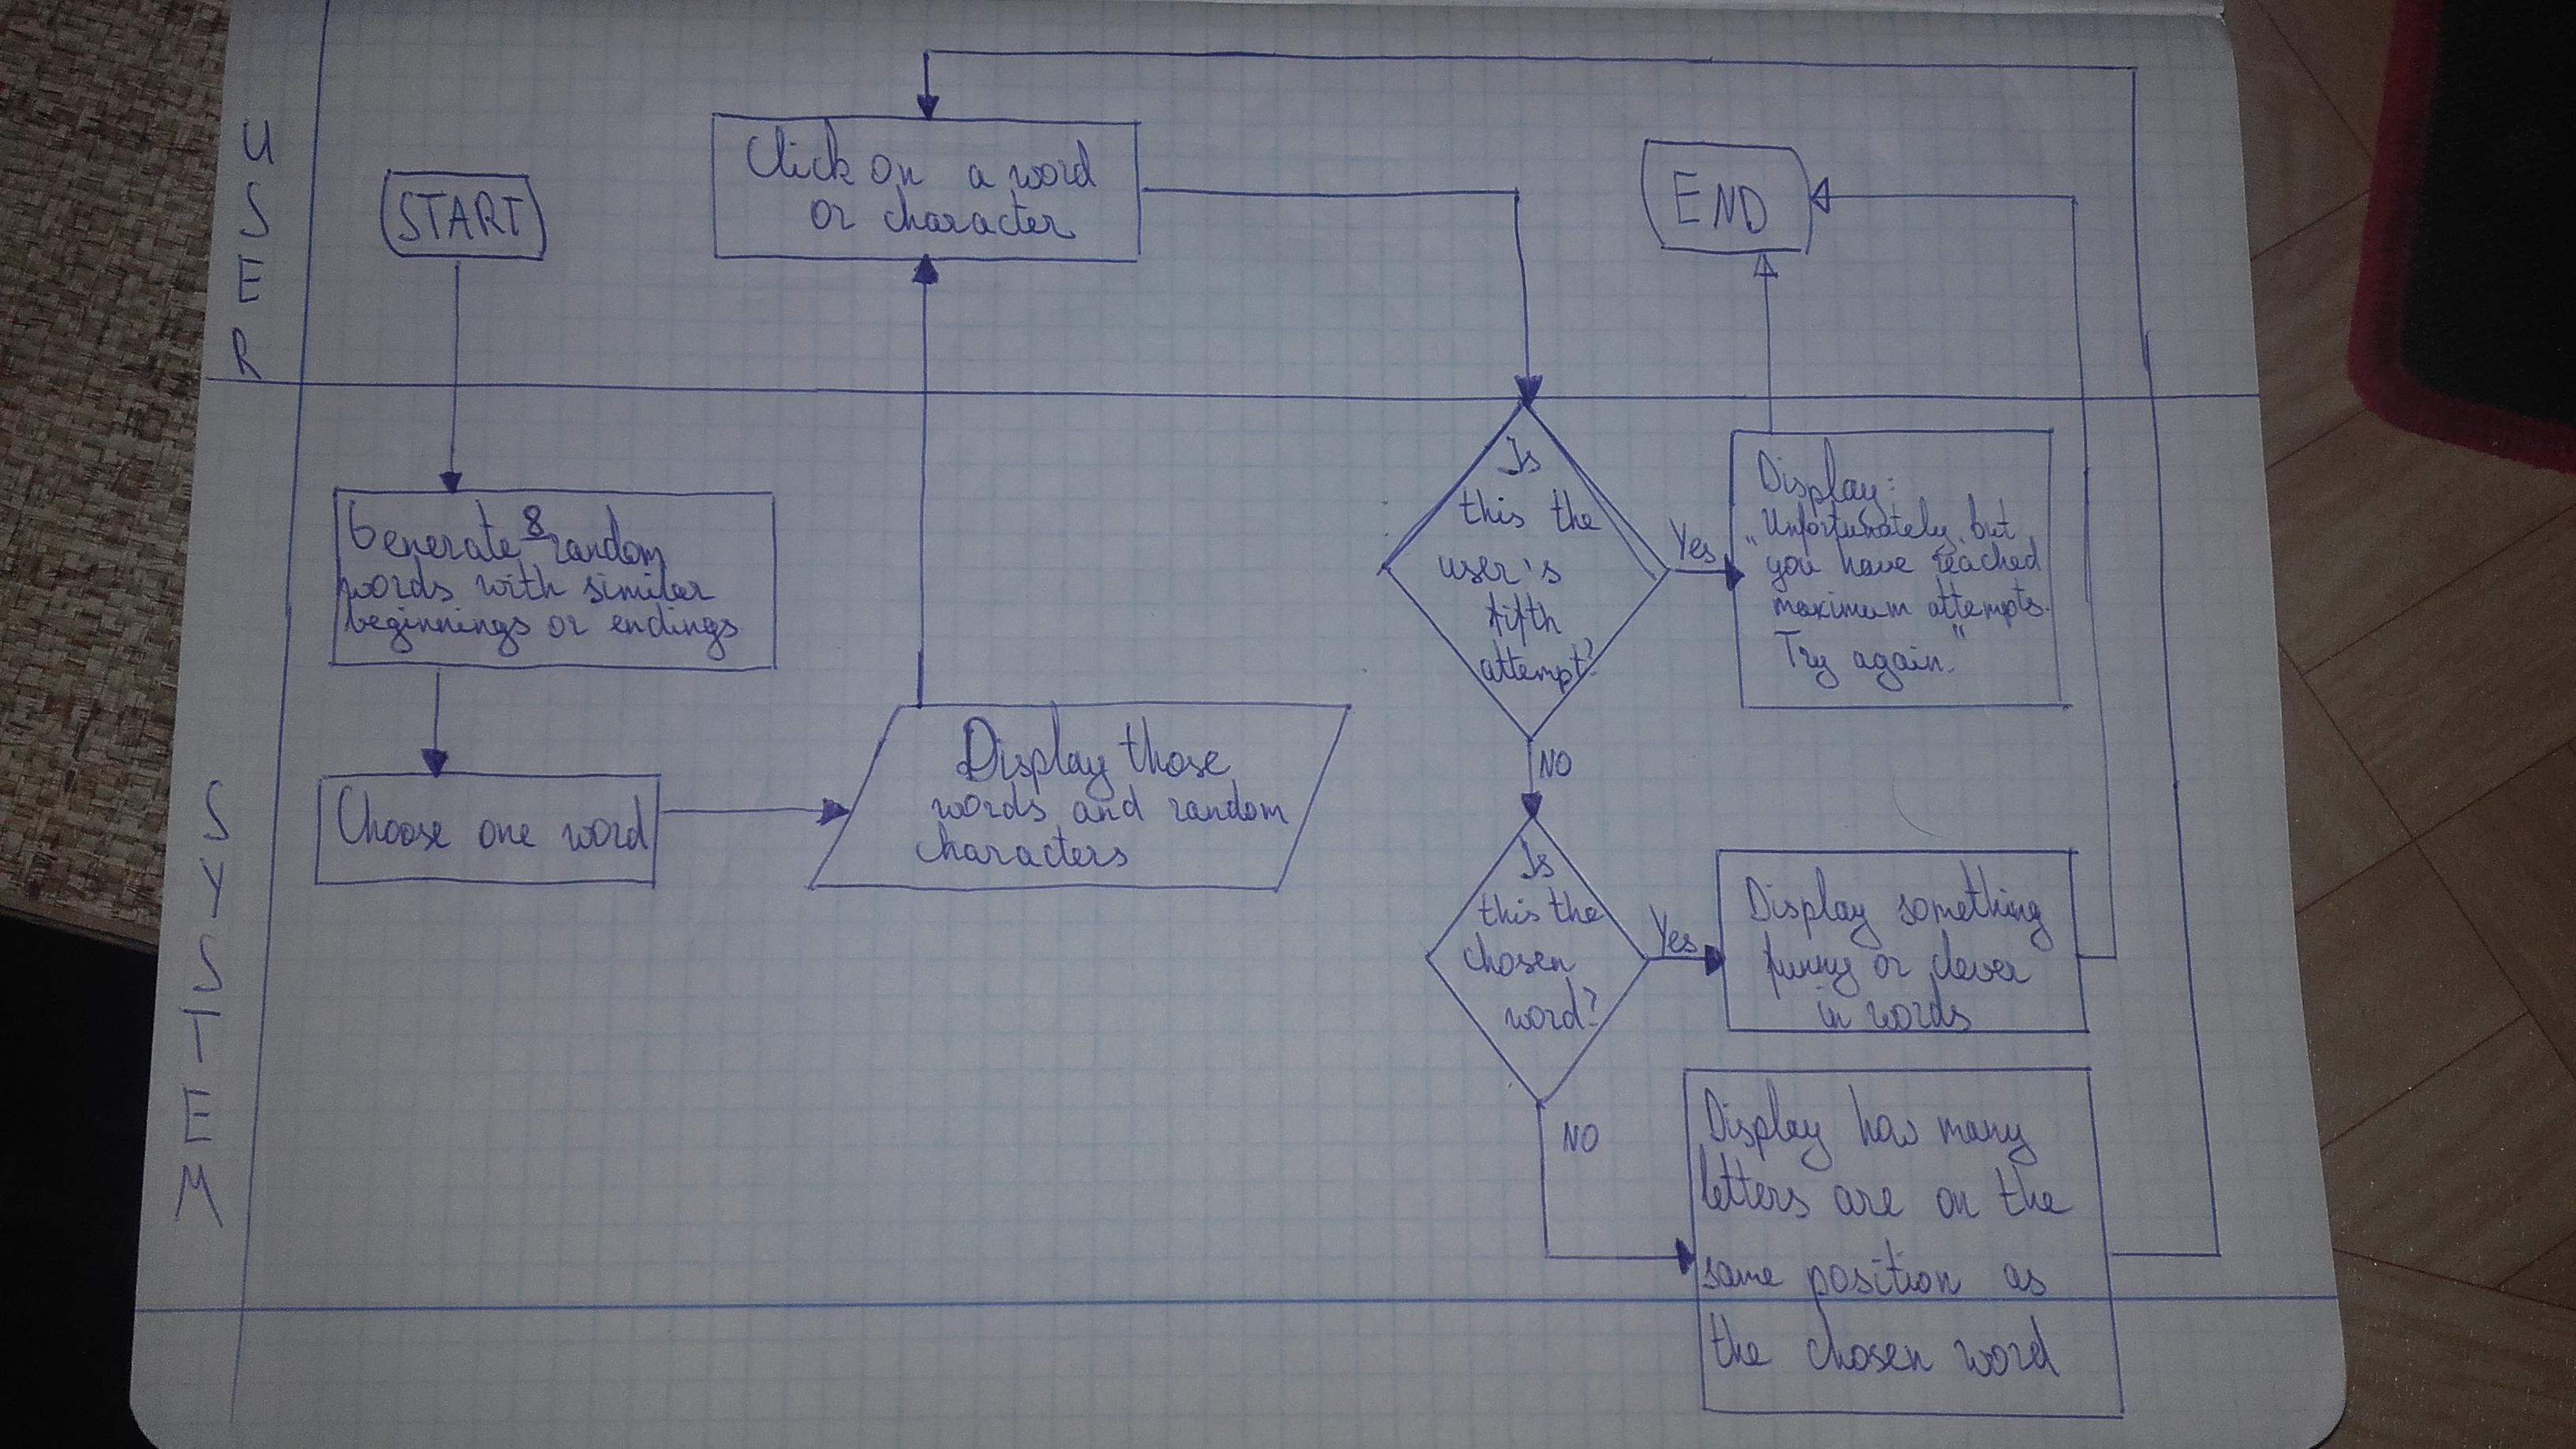 USER
START
Click on a word
or character
END
SYSTEM
Generate 8 random
words with similar
beginnings or endings
Choose one word
Display those
words and random
characters
Is
this the
user's
fifth
attempt?
Yes
Display:
"Unfortunately, but
you have reached
maximum attempts.
Try again."
NO
Is
this the
chosen
word?
Yes
Display something
funny or clever
in words
NO
Display how many
letters are on the
same position as
the chosen word